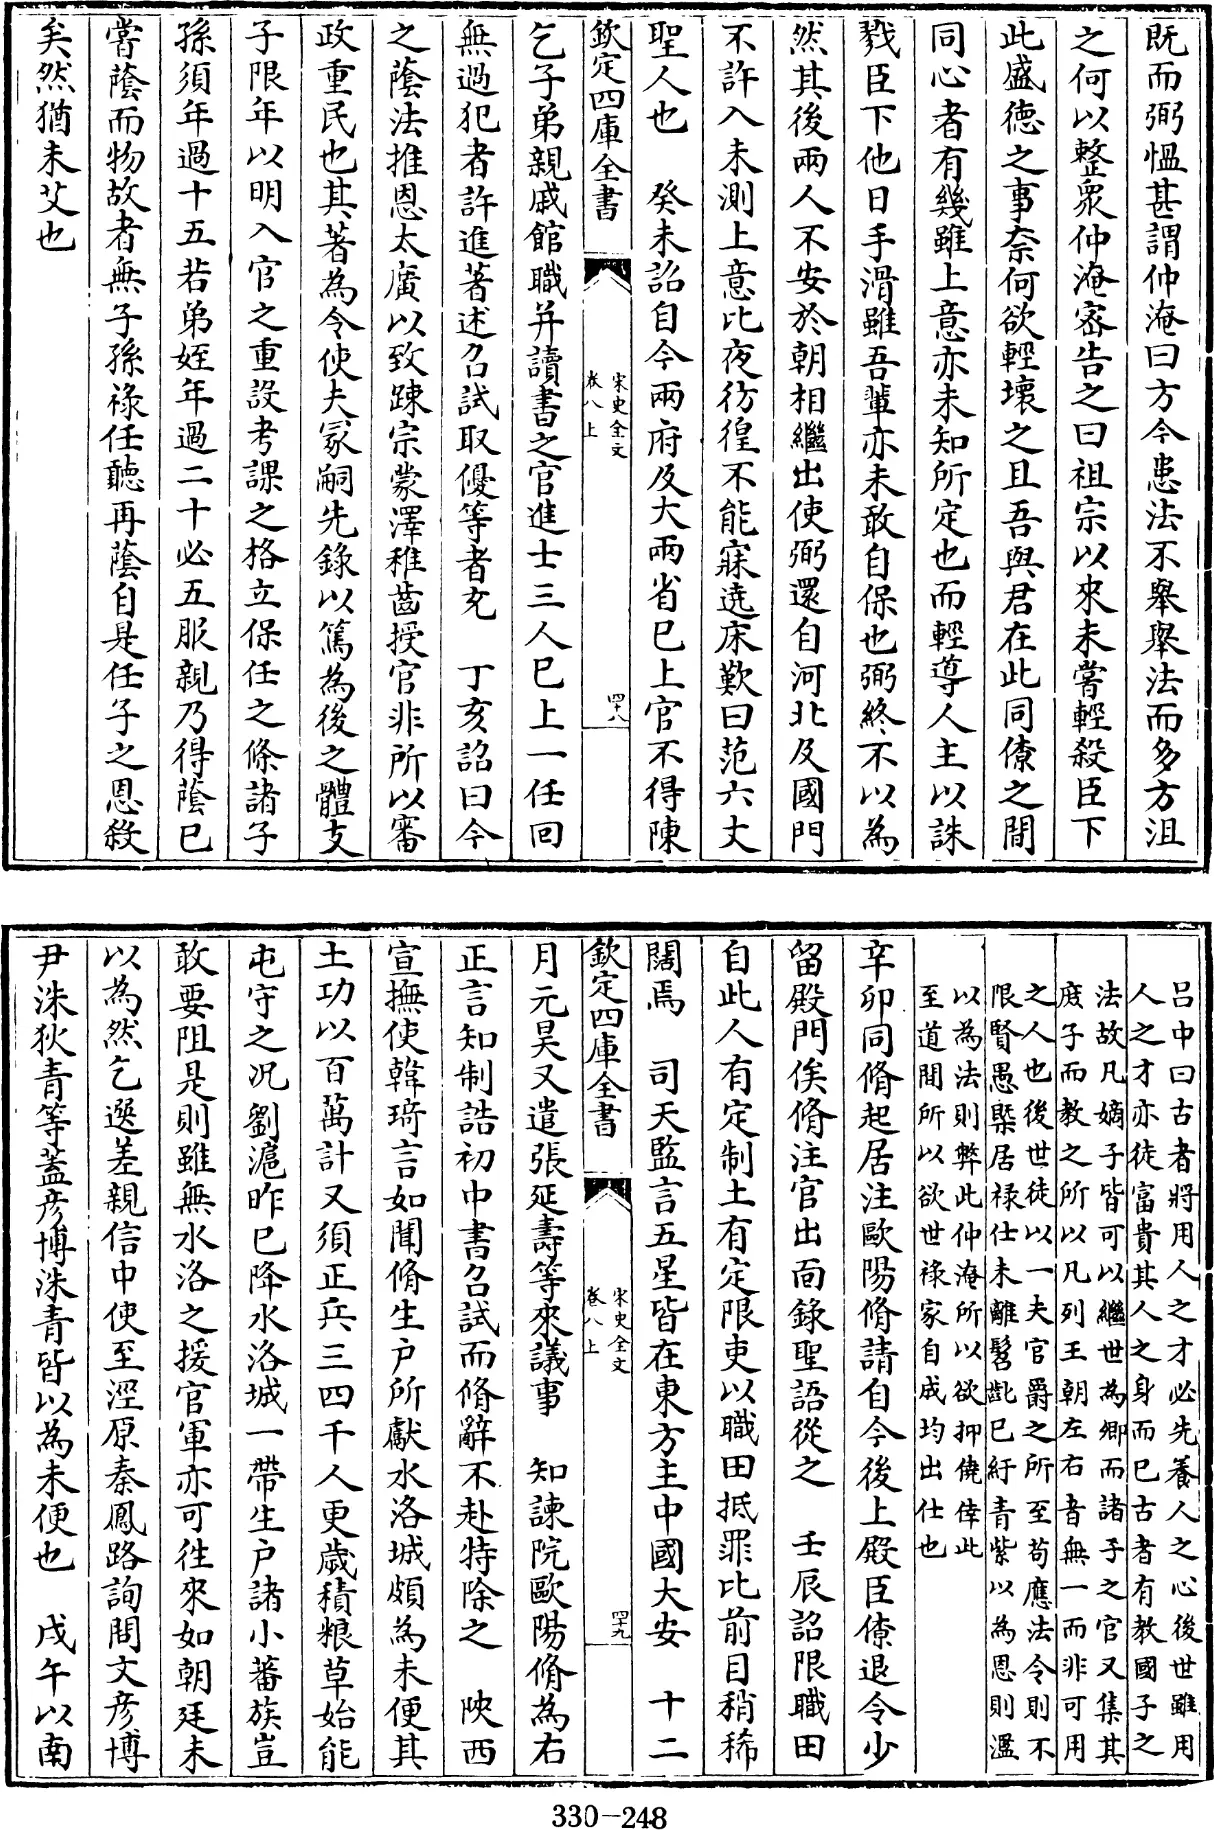 既而弼愠甚謂仲淹曰方今患法不舉舉法而多方沮
之何以整衆仲淹密告之曰祖宗以來未嘗輕殺臣下
此盛德之事奈何欲輕壞之且吾與君在此同僚之間
同心者有幾雖上意亦未知所定也而輕導人主以誅
戮臣下他日手滑雖吾輩亦未敢自保也弼終不以為
然其後兩人不安於朝相繼出使弼還自河北及國門
不許入未測上意比夜彷徨不能寐遶床歎曰范六丈
聖人也　癸未詔自今兩府及大兩省已上官不得陳
欽定四庫全書
宋史全文
卷八上
四十八
乞子弟親戚館職并讀書之官進士三人已上一任回
無過犯者許進著述召試取優等者充　丁亥詔曰今
之蔭法推恩太廣以致踈宗蒙澤稚齒授官非所以審
政重民也其著為令使夫冢嗣先錄以篤為後之體支
子限年以明入官之重設考課之格立保任之條諸子
孫須年過十五若弟姪年過二十必五服親乃得蔭已
嘗蔭而物故者無子孫祿任聽再蔭自是任子之恩殺
矣然猶未艾也
呂中曰古者將用人之才必先養人之心後世雖用
人之才亦徒富貴其人之身而已古者有教國子之
法故凡嫡子皆可以繼世為卿而諸子之官又集其
庶子而教之所以凡列王朝左右者無一而非可用
之人也後世徒以一夫官爵之所至苟應法令則不
限賢愚槩居禄仕未離髫齔已紆青紫以為恩則濫
以為法則弊此仲淹所以欲抑僥倖此
至道間所以欲世禄家自成均出仕也
辛卯同脩起居注歐陽脩請自今後上殿臣僚退令少
留殿門俟脩注官出面錄聖語從之　壬辰詔限職田
自此人有定制土有定限吏以職田抵罪比前日稍稀
闊焉　司天監言五星皆在東方主中國大安　十二
欽定四庫全書
宋史全文
卷八上
四十九
月元昊又遣張延壽等來議事　知諫院歐陽脩為右
正言知制誥初中書召試而脩辭不赴特除之　陜西
宣撫使韓琦言如聞脩生户所獻水洛城頗為未便其
土功以百萬計又須正兵三四千人更歲積糧草始能
屯守之况劉滬昨已降水洛城一帶生户諸小蕃族豈
敢要阻是則雖無水洛之援官軍亦可徃來如朝廷未
以為然乞選差親信中使至涇原秦鳳路詢問文彦博
尹洙狄青等蓋彦博洙青皆以為未便也　戊午以南
330-248